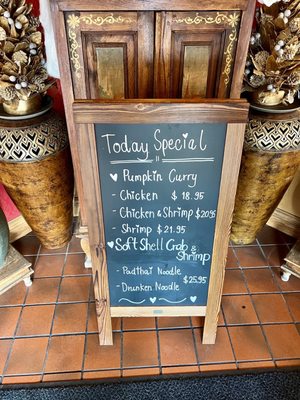 Today Special
Pumpkin Curry
- Chicken $ 18.95
- Chicken & Shrimp $20.95
- Shrimp $ 21.95
Soft Shell Crab &
Shrimp
- Padthai Noodle
- Drunken Noodle $25.95